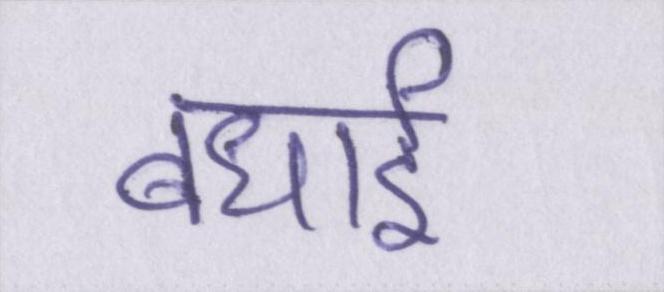 बधाई